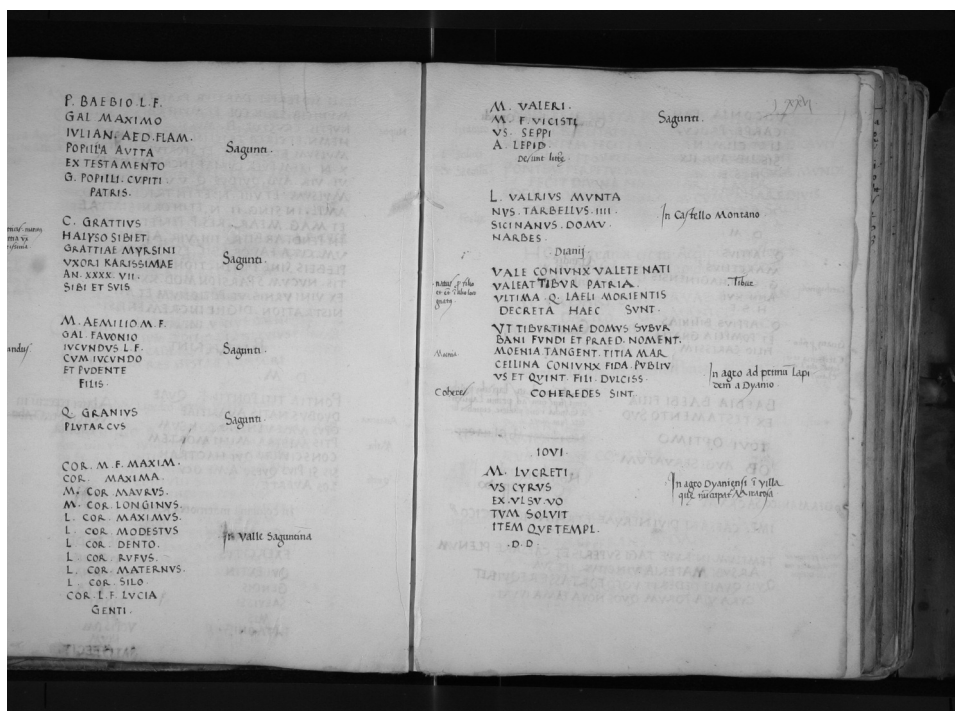 P. BAEBIO. L. F.
GAL MAXIMO
IVLIAN. AED. FLAM.
POPILLA AVITA
EX TESTAMENTO
G. POPILLI. CVPITI
PATRIS.
Sagunti.
C. GRATTIVS
HALYSO SIBI ET
GRATTIAE MYRSINI
VXORI KARISSIMAE
AN. XXXX. VII.
SIBI ET SVIS
Sagunti.
M. AEMILIO. M. F.
GAL. FAVONIO
IVCVNDVS L. F.
CVM IVCVNDO
ET PVDENTE
FILIS.
Sagunti.
Q. GRANIVS
PLVTARCVS
Sagunti.
COR. M. F. MAXIM.
COR. MAXIMA.
M. COR MAVRVS.
M. COR LONGINVS.
L. COR. MAXIMVS.
L. COR. MODESTVS
L. COR. DENTO.
L. COR. RVFVS.
L. COR. MATERNVS.
L. COR. SILO.
COR. L. F. LVCIA
GENTI.
In Valle Saguntina
M. VALERI.
M. F. VICISTI.
VS. SEPPI
A. LEPID
Desunt litterae.
Sagunti.
L. VALRIVS MVNTA
NVS. TARBELLVS. IIII.
SICINANVS. DOMV.
NARBES.
In Castello Montano
Dianij
VALE CONIVNX VALETE NATI
VALEAT TIBVR PATRIA.
VLTIMA. Q. LAELI MORIENTIS
DECRETA HAEC SVNT.
Tibur
VT TIBVRTINAE DOMVS SVBVR
BANI FVNDI ET PRAED. NOMENT.
MOENIA TANGENT. TITIA MAR
CELLINA CONIVNX FIDA. PVBLIV
VS ET QVINT. FILI. DVLCISS.
COHEREDES SINT
Moenia
Coheredes
In agro ad primum lapi
dem a Dyanio.
IOVI.
M. LVCRETI.
VS CYRVS
EX. VLSV. VO
TVM SOLVIT
ITEM QVE TEMPL.
.D. D.
In agro Dyaniensi in villa